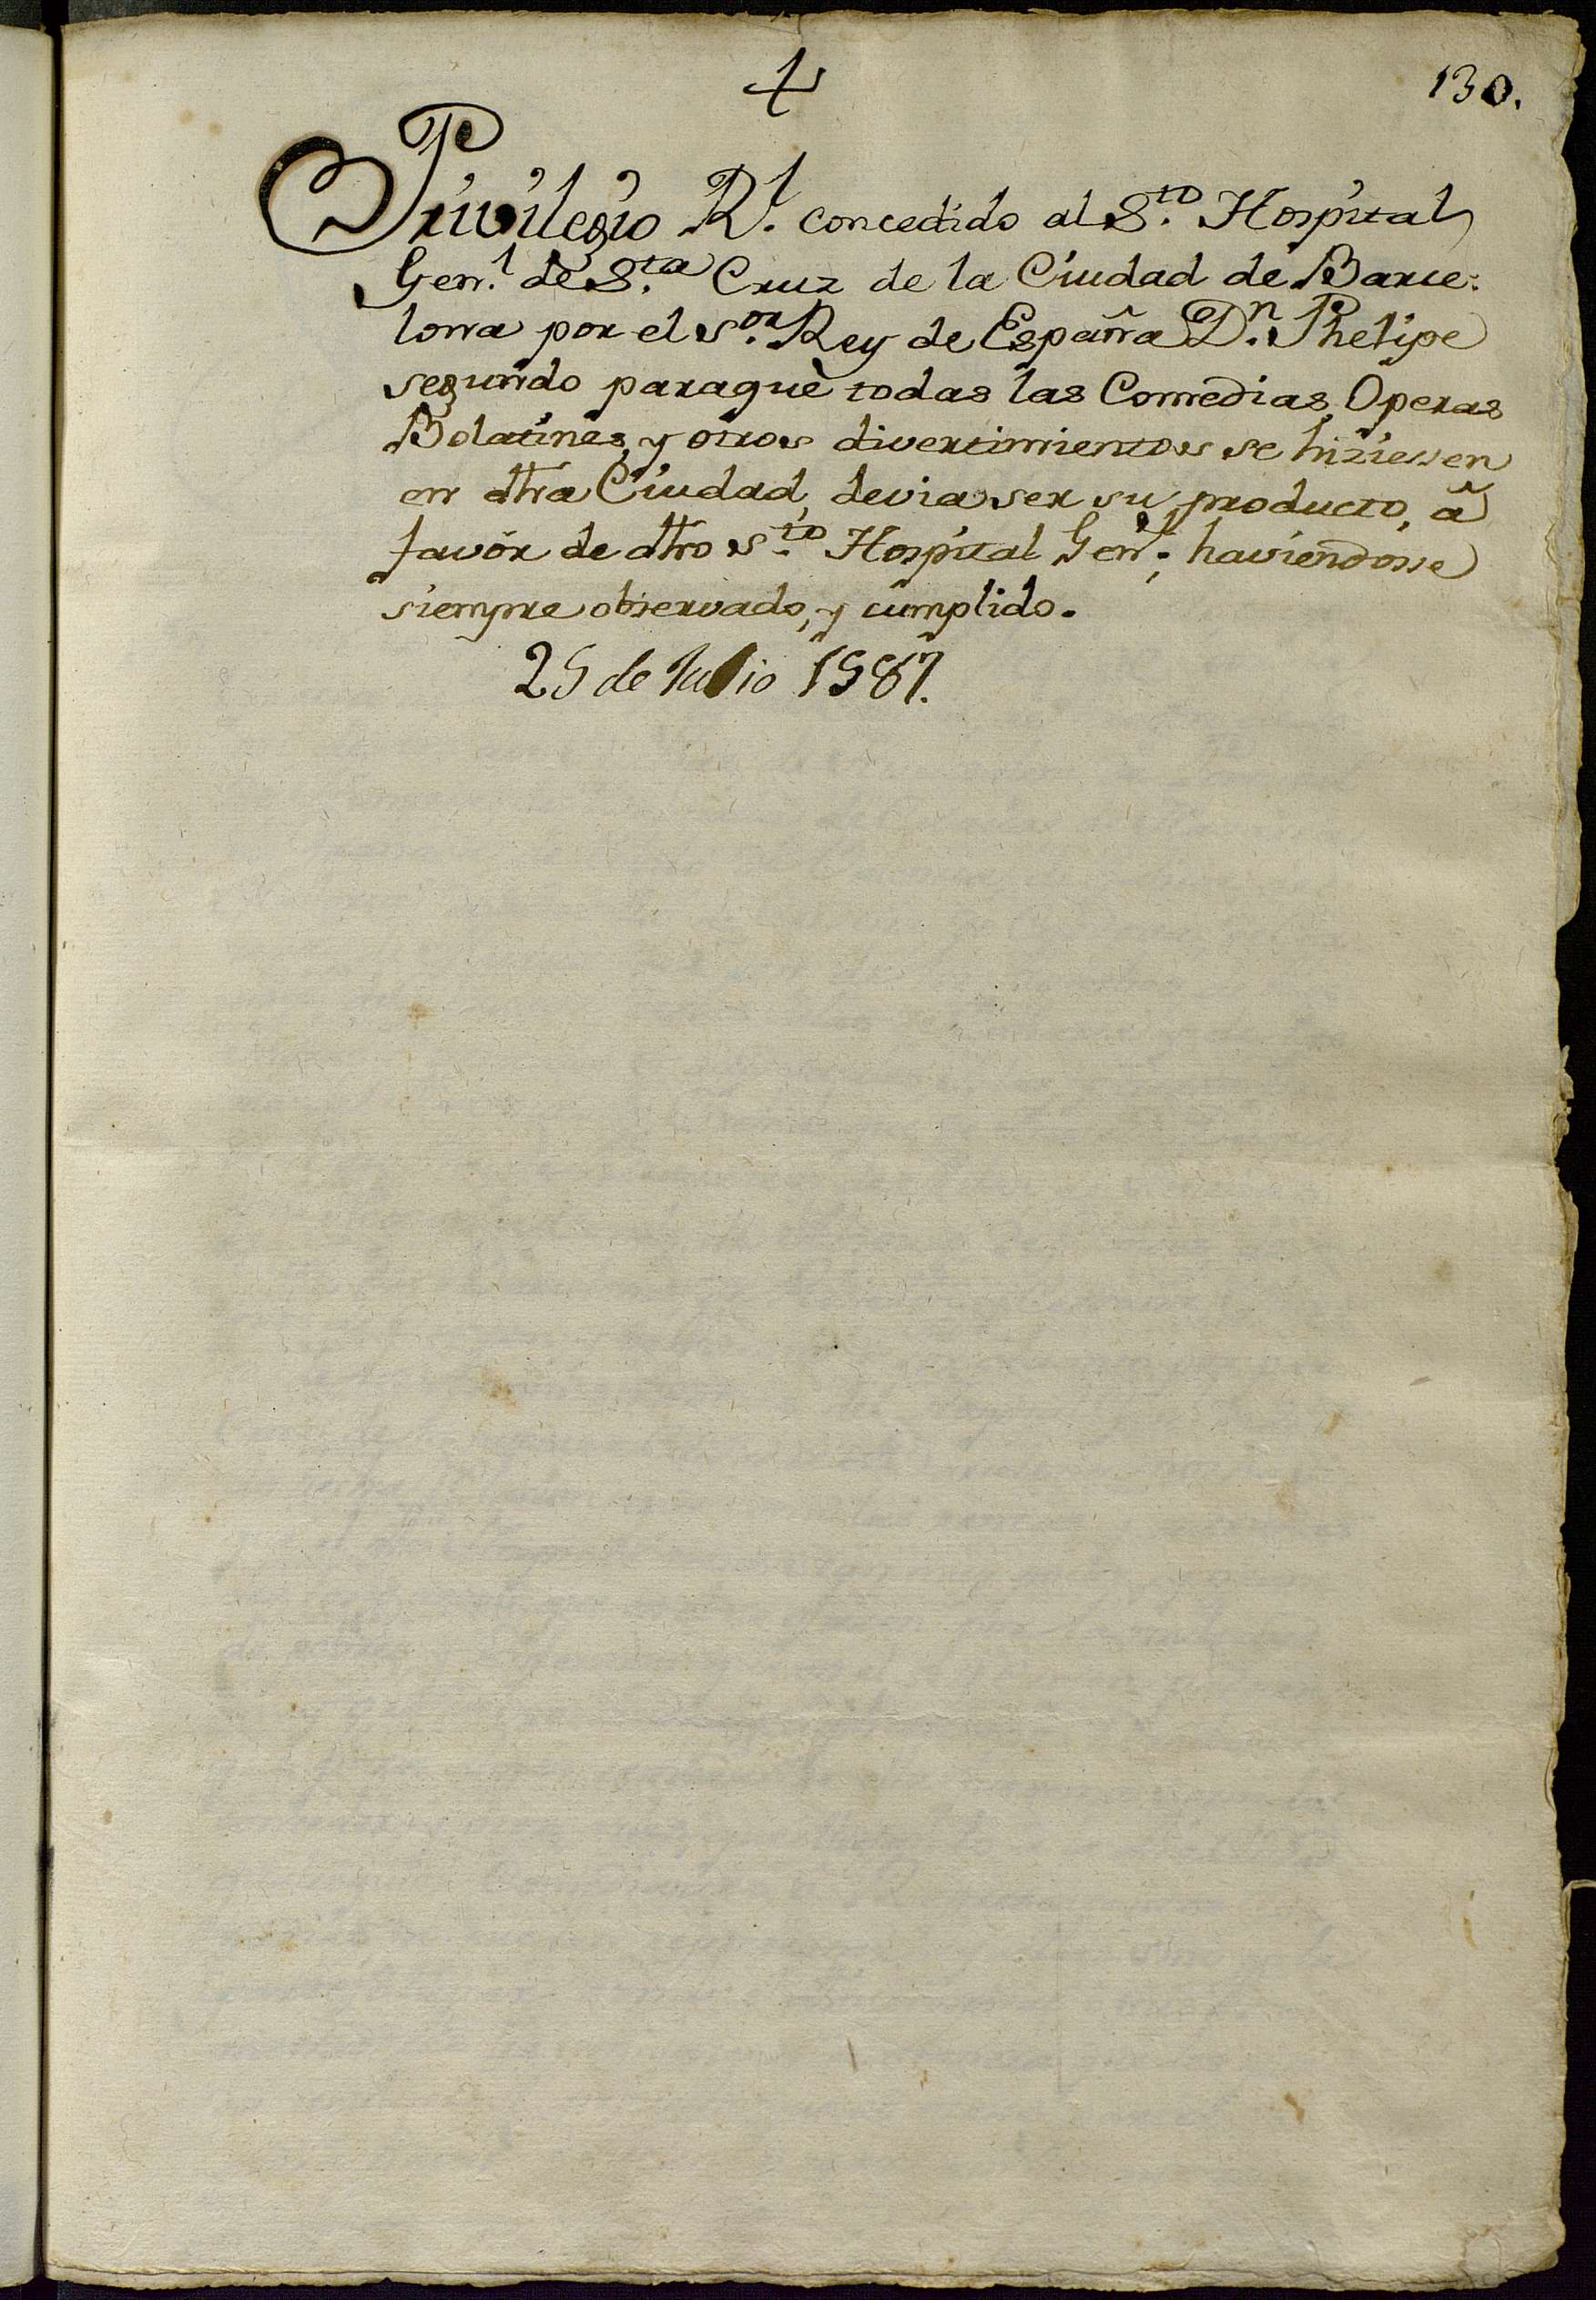 130.
Privilegio Rl. concedido al Sto. Hospital
Genl. de Sta. Cruz de la Ciudad de Barce:
lona por el Sor. Rey de España Dn. Phelipe
segundo paraquè todas las Comedias, Operas
Bolatines, y otros divertimientos se hiziessen
en dha Ciudad, devia ser su producto, â
favòr de dho Sto. Hospital Genl.; haviendosse
siempre observado, y cumplido.
25 de Julio 1587.